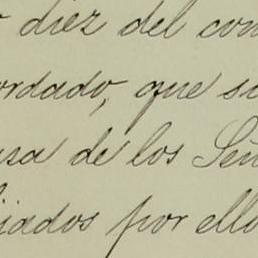 diez del con
ordado, que su
usa de los Señ
jados por ello